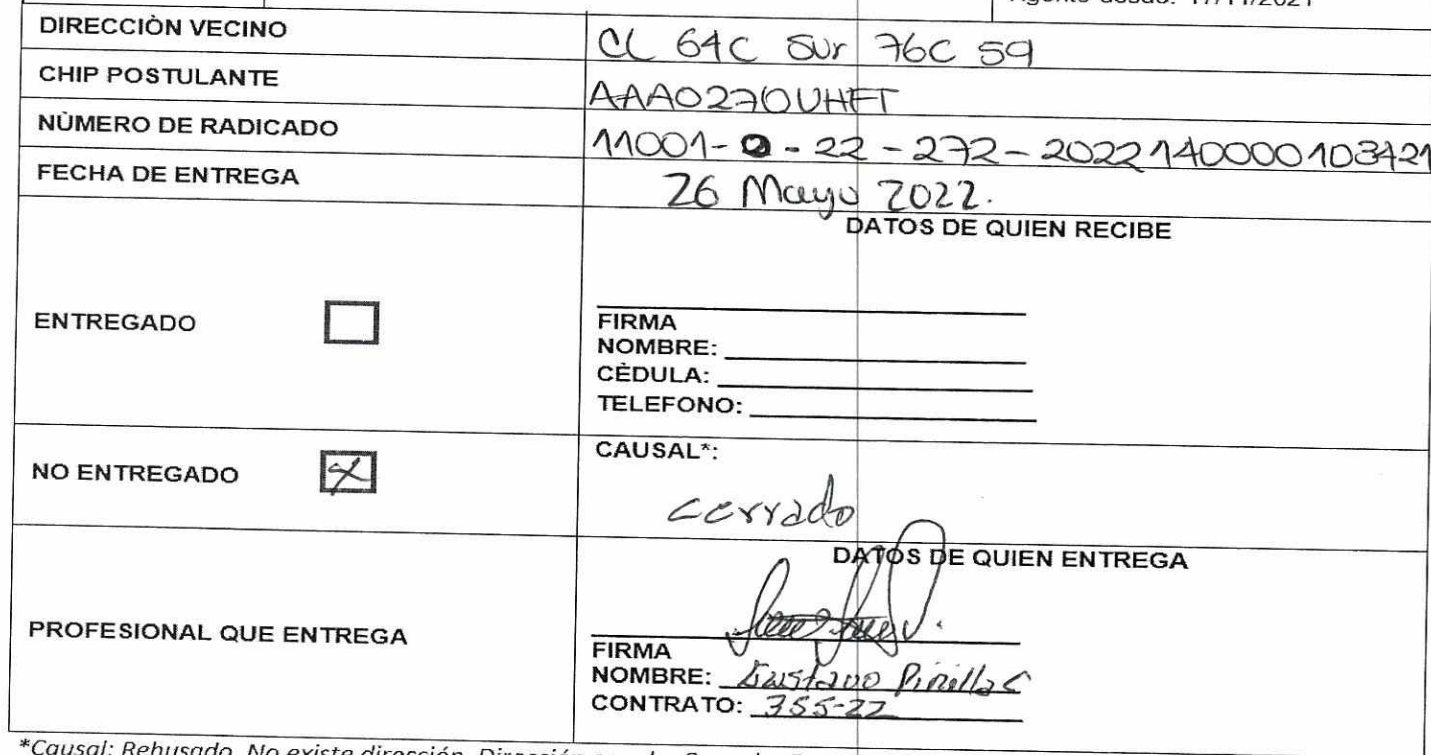 DIRECCIÒN VECINO
CL 64C Sur 76C 59
CHIP POSTULANTE
AAA0270UHFT
NÙMERO DE RADICADO
11001-0-22-272-2022140000103421
FECHA DE ENTREGA
26 Mayo 2022.
DATOS DE QUIEN RECIBE
ENTREGADO
FIRMA
NOMBRE:
CÈDULA:
TELEFONO:
NO ENTREGADO
CAUSAL*:
cerrado
DATOS DE QUIEN ENTREGA
PROFESIONAL QUE ENTREGA
FIRMA
NOMBRE: Gustavo Pinilla C
CONTRATO: 355-22
*Causal: Rehusado, No existe dirección, Dirección